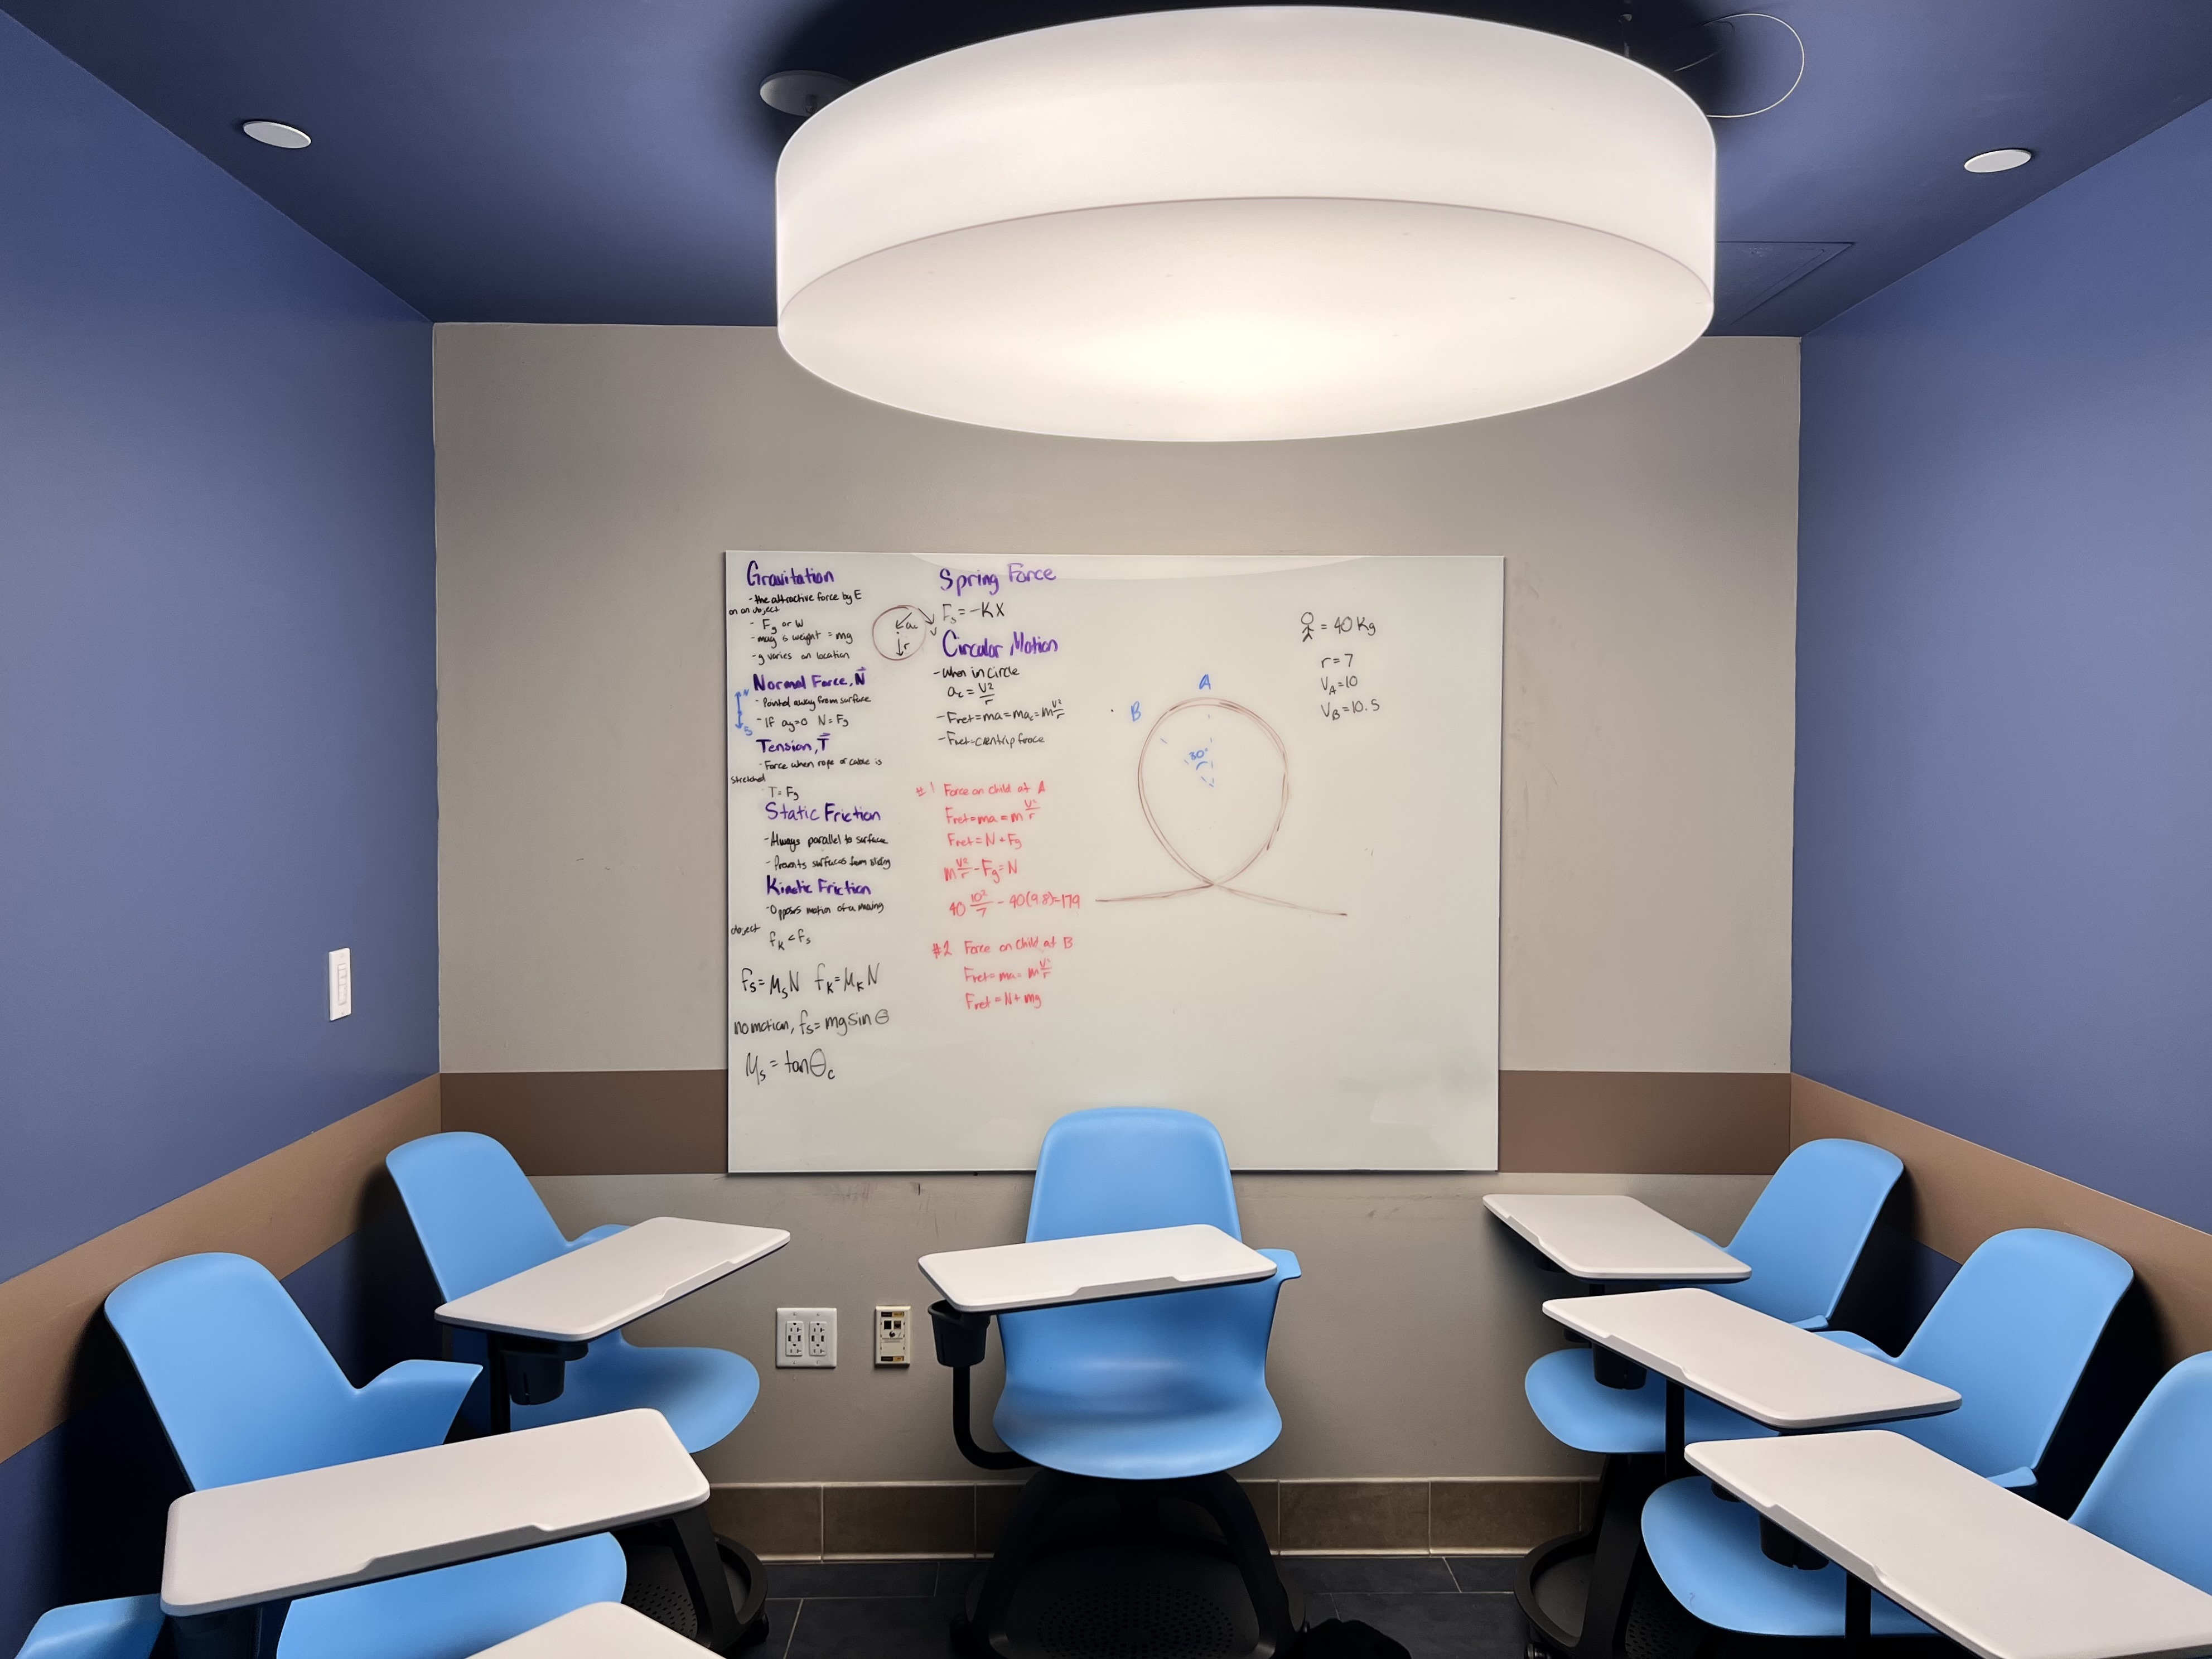 Gravitation
- the attractive force by E
on an object
- Fg or W
- mag is weight = mg
- g varies on location
Normal Force, N⃗
- Pointed away from surface
- If ay=0 N=Fg
N
S
Tension, T⃗
- Force when rope or cable is
stretched
T=Fg
Static Friction
- Always parallel to surface
- Prevents surfaces from sliding
Kinetic Friction
- Opposes motion of a moving
object
fk<fs
fs=μsN fk=μkN
no motion, fs=mgsinθ
μs=tanθc
ac
r
v
Spring Force
Fs=-Kx
Circular Motion
- When in circle
ac=V²/r
- Fnet=ma=mac=mV²/r
- Fnet=centrip force
#1 Force on Child at A
Fnet=ma=mV²/r
Fnet=N+Fg
mV²/r-Fg=N
40 10²/7 - 40(9.8)=179
#2 Force on Child at B
Fnet=ma=mV²/r
Fnet=N+mg
A
B
30°
= 40 Kg
r=7
VA=10
VB=10.5